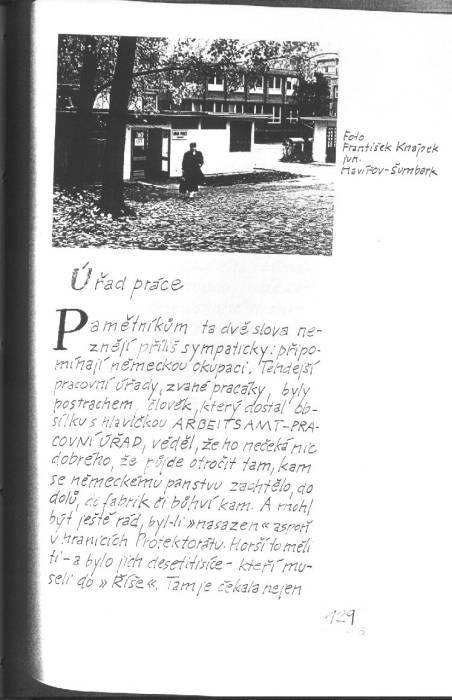 Foto
František Knajpek
jun.
Havířov-Šumbark
Úřad práce
Pamětníkům ta dvě slova ne-
znějí příliš sympaticky: připo-
mínají německou okupaci. Tehdejší
pracovní úřady, zvané pracáky, byly
postrachem, člověk, který dostal ob-
sílku s hlavičkou ARBEITSAMT-PRA-
COVNÍ ÚŘAD, věděl, že ho nečeká nic
dobrého, že půjde otročit tam, kam
se německému panstvu zachtělo, do
dolů, do fabrik či bůhví kam. A mohl
být ještě rád, byl-li »nasazen« aspoň
v hranicích Protektorátu. Horší to měli
ti - a bylo jich desetitisíce - kteří mu-
seli do »Říše«. Tam je čekala nejen
129